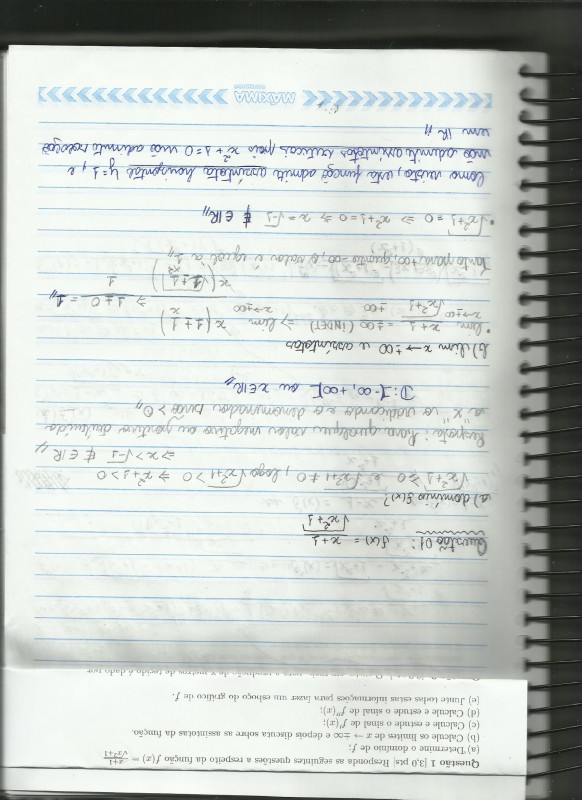 Questão 1 [3,0 pts] Responda as seguintes questões a respeito da função f(x) = x+1/√x²+1
(a) Determine o domínio de f;
(b) Calcule os limites de x → ±∞ e depois discuta sobre as assíntotas da função.
(c) Calcule e estude o sinal de f'(x);
(d) Calcule e estude o sinal de f''(x);
(e) Junte todas estas informações para fazer um esboço do gráfico de f.
Questão 01: f(x) = x+1/√x²+1
a) domínio f(x)?
√x²+1 ≥ 0 e √x²+1 ≠ 0, logo √x²+1 > 0 ⇒ x²+1 > 0
⇒ x > √-1 ∉ IR //
Resposta: Para qualquer valor negativo ou positivo atribuído
a "x" o radicando e o denominador será > 0 //
D: ]-∞, +∞[ ou x ∈ IR //
b) lim x → ±∞ e assíntotas
• lim x→±∞ x+1/√x²+1 = ±∞/±∞ (INDET) ⇒ lim x→±∞ x(1+1/x)/x(√1+1/x²) ⇒ 1±0/1 = 1 //
Tanto para +∞, quanto -∞, o valor é igual a 1 //
• √x²+1 = 0 ⇒ x²+1 = 0 ⇒ x = √-1 ∉ IR //
Como visto, esta função admite assíntota horizontal y = 1, e
não admite assíntotas verticais pois x²+1=0 não admite solução
em IR //
MÁXIMA